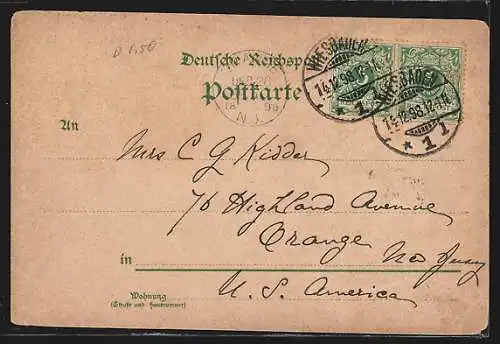 D 1,50
Deutsche Reichspost
Postkarte
DEC 20
18 98
N.J.
WIESBADEN
14.12.98.12-1N.
* 1 1
WIESBADEN
14.12.98.12-1N.
* 1 1
An
Mrs C G Kidder
76 Highland Avenue
Orange New Jersey
in
U. S. America
Wohnung
(Straße und Hausnummer)